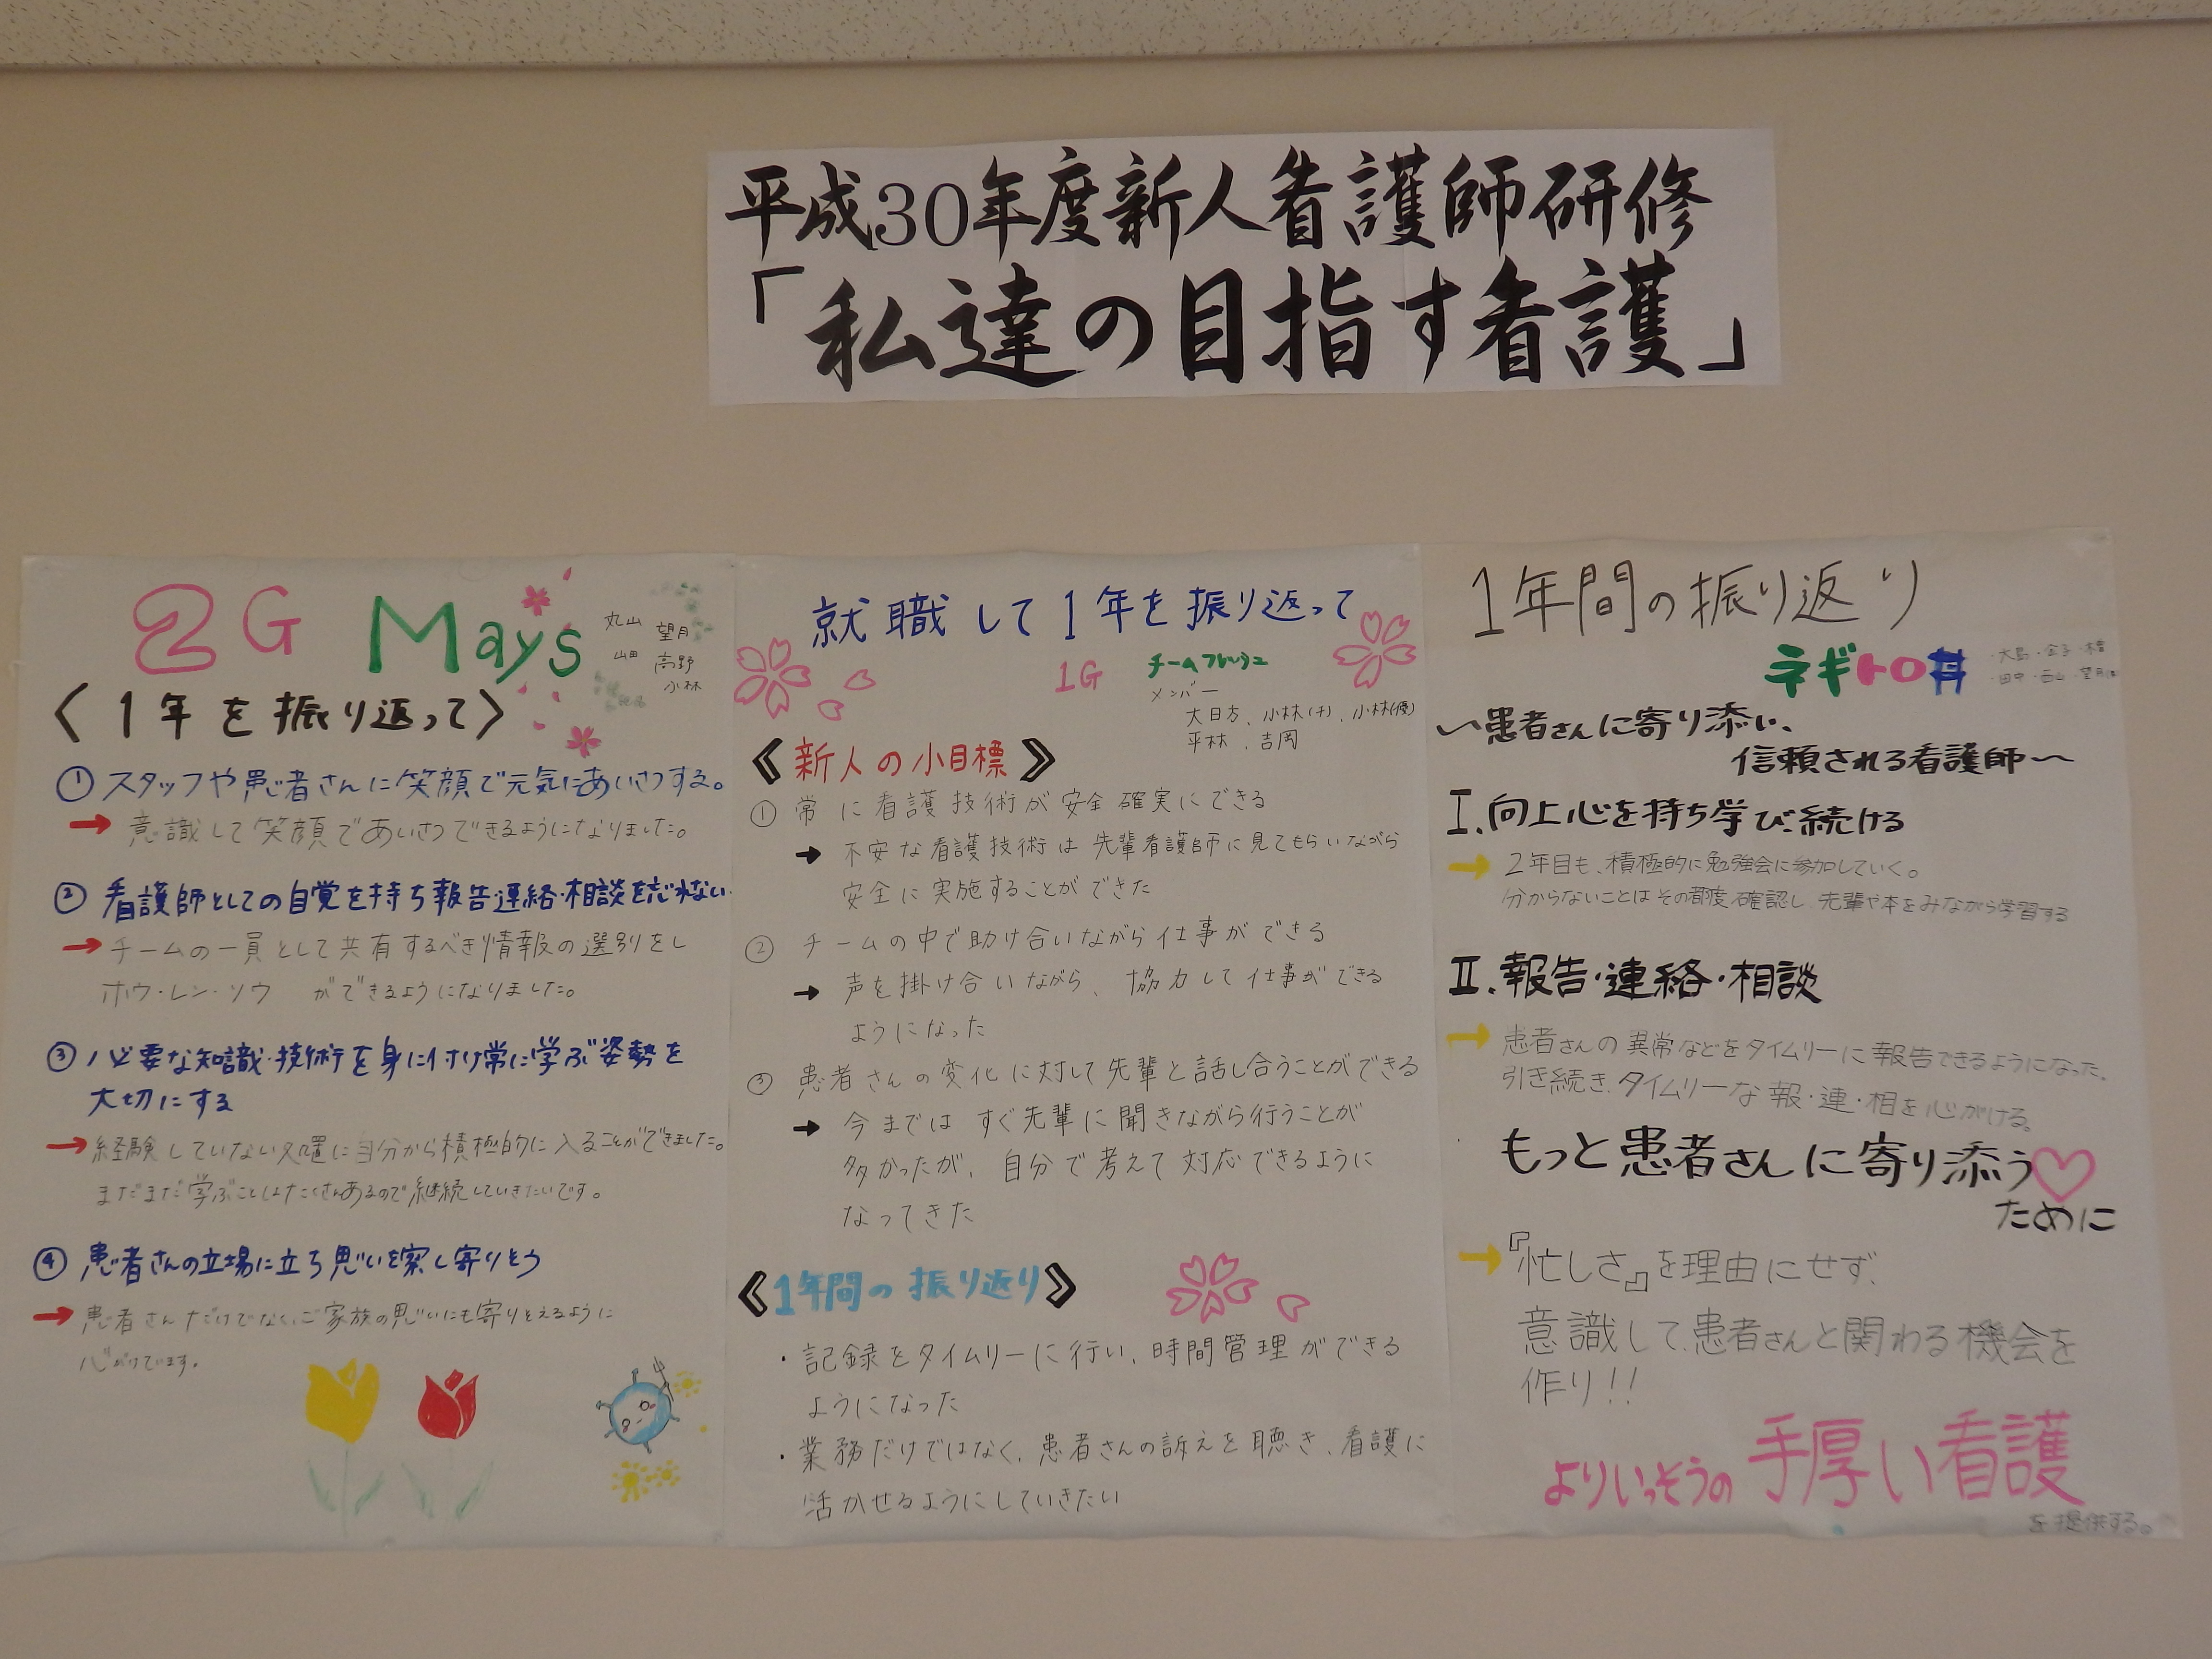 平成30年度新人看護師研修
「私達の目指す看護」
2G Mays
丸山 望月
高野
小林
〈1年を振り返って〉
① スタッフや患者さんに笑顔で元気にあいさつする。
→ 意識して笑顔であいさつできるようになりました。
② 看護師としての自覚を持ち報告・連絡・相談を忘れない
→ チームの一員として共有するべき情報の選別をし
ホウ・レン・ソウ ができるようになりました。
③ 必要な知識・技術を身に付け常に学ぶ姿勢を
大切にする
→ 経験していない処置に自分から積極的に入ることができました。
まだまだ学ぶことはたくさんあるので継続していきたいです。
④ 患者さんの立場に立ち思いを察し寄りそう
→ 患者さんだけでなくご家族の思いにも寄りそえるように
心がけています。
就職して1年を振り返って
1G チームフレッシュ
メンバー
大日方、小林(千)、小林(優)
平林、吉岡
《新人の小目標》
① 常に看護技術が安全確実にできる
→ 不安な看護技術は先輩看護師に見てもらいながら
安全に実施することができた
② チームの中で助け合いながら仕事ができる
→ 声を掛け合いながら、協力して仕事ができる
ようになった
③ 患者さんの変化に対して先輩と話し合うことができる
→ 今まではすぐ先輩に聞きながら行うことが
多かったが、自分で考えて対応できるように
なってきた
《1年間の振り返り》
・記録をタイムリーに行い、時間管理ができる
ようになった
・業務だけではなく、患者さんの訴えを聴き、看護に
活かせるようにしていきたい
1年間の振り返り
ネギトロ丼
・大島・金子
・田中・西山・望月
〜患者さんに寄り添い、
信頼される看護師〜
Ⅰ.向上心を持ち学び続ける
→ 2年目も、積極的に勉強会に参加していく。
分からないことはその都度確認し、先輩や本をみながら学習する
Ⅱ.報告・連絡・相談
→ 患者さんの異常などをタイムリーに報告できるようになった。
引き続き、タイムリーな報・連・相を心がける。
もっと患者さんに寄り添う♡
ために
→ 『忙しさ』を理由にせず、
意識して、患者さんと関わる機会を
作り!!
よりいっそうの手厚い看護
を提供する。